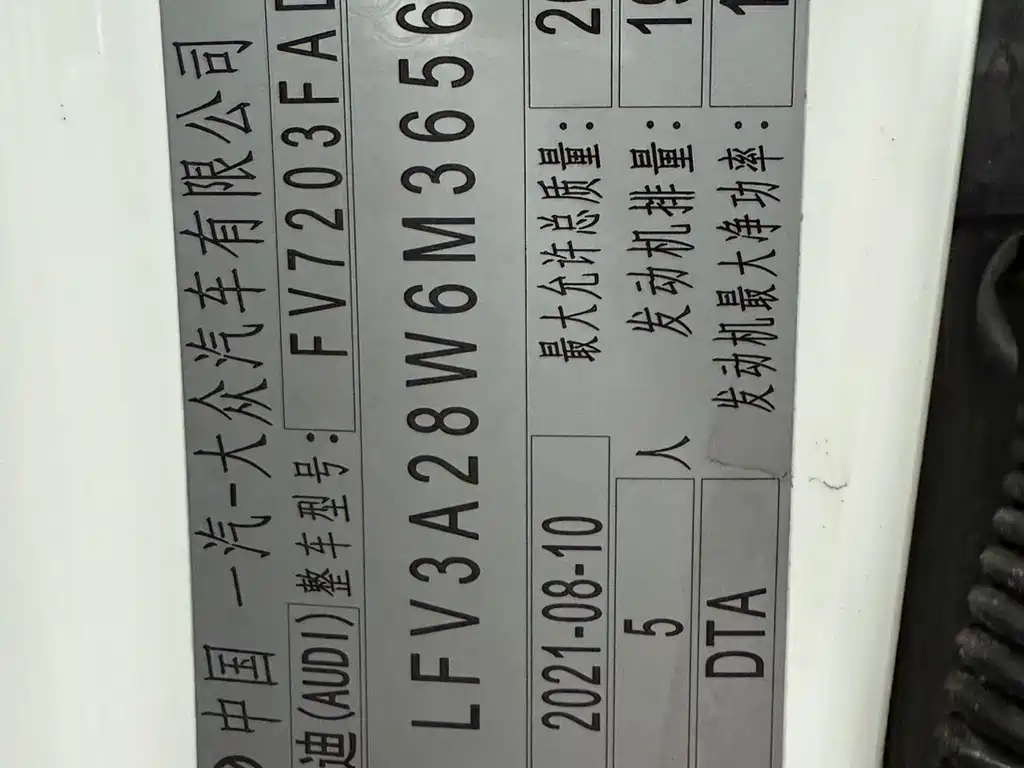 中国 一汽-大众汽车有限公司
迪(AUDI) 整车型号: FV7203FAD
LFV3A28W6M3656
2021-08-10 最大允许总质量: 2
5 人 发动机排量: 19
DTA 发动机最大净功率: 1